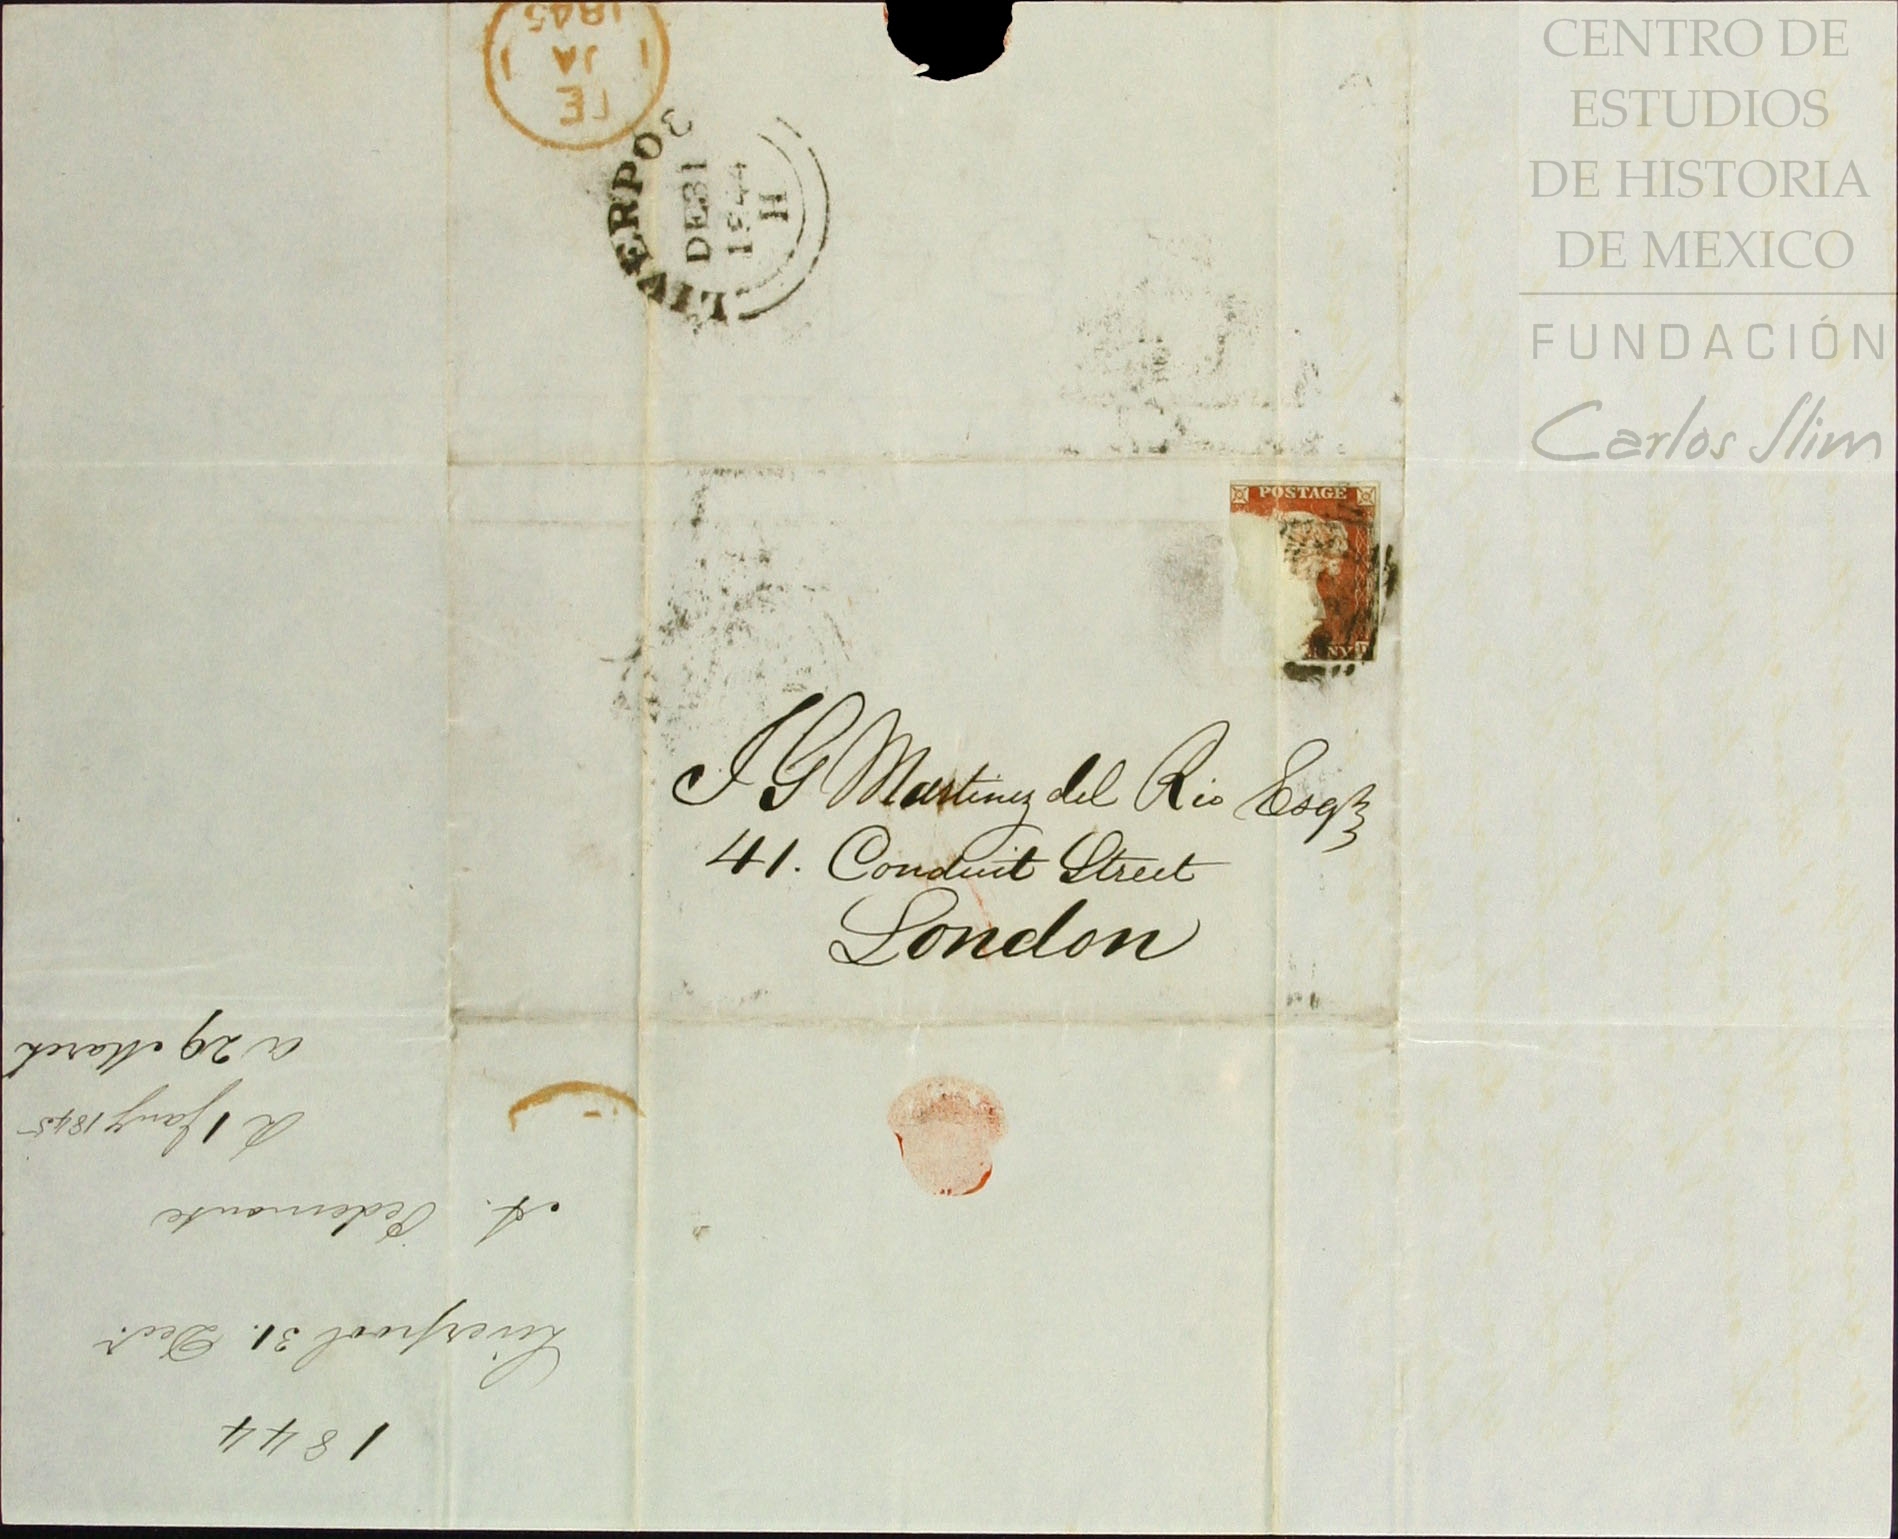 1845
1 JA 1
TE
LIVERPOO
DE 31
1844
H
CENTRO DE
ESTUDIOS
DE HISTORIA
DE MEXICO
FUNDACIÓN
Carlos Slim
POSTAGE
J G Martinez del Rio Esqr
41. Conduit Street
London
1844
Liverpool 31. Decr.
A. Pedemonte
R 1 Jany 1845
a 29 March